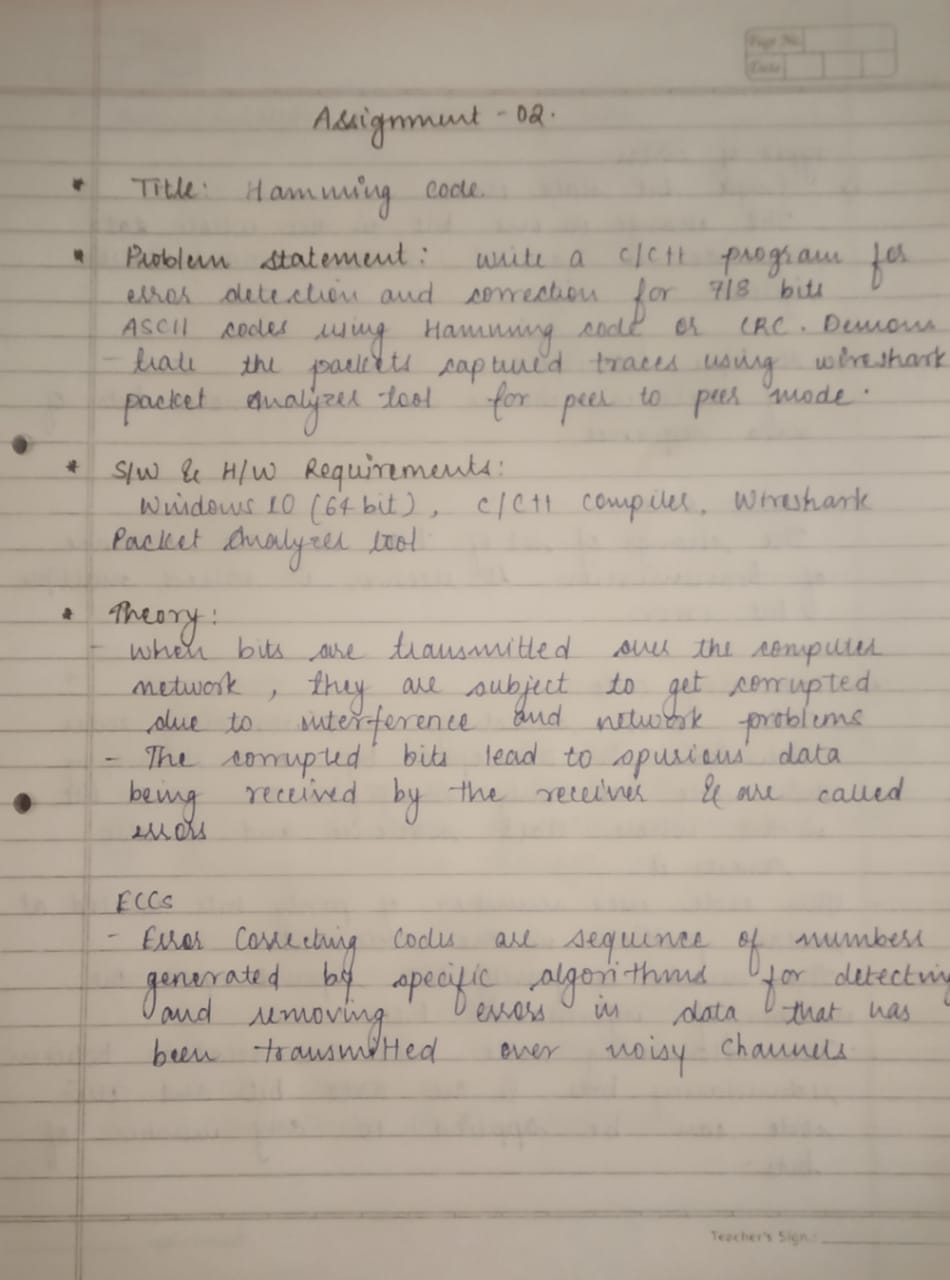 Page No.
Date
Assignment - 02.
* Title: Hamming code.
* Problem statement: write a C/C++ program for
error detection and correction for 7/8 bits
ASCII codes using Hamming code or CRC. Demons
- trate the packets captured traces using wireshark
packet analyzer tool for peer to peer mode.
* S/W & H/W Requirements:
Windows 10 (64 bit), C/C++ compiler, Wireshark
Packet Analyzer tool
* Theory:
- When bits are transmitted over the computer
network, they are subject to get corrupted
due to interference and network problems
- The corrupted bits lead to spurious data
being received by the receiver & are called
errors
ECCs
- Error Correcting Codes are sequence of numbers
generated by specific algorithms for detecting
and removing errors in data that has
been transmitted over noisy channels
Teacher's Sign.: